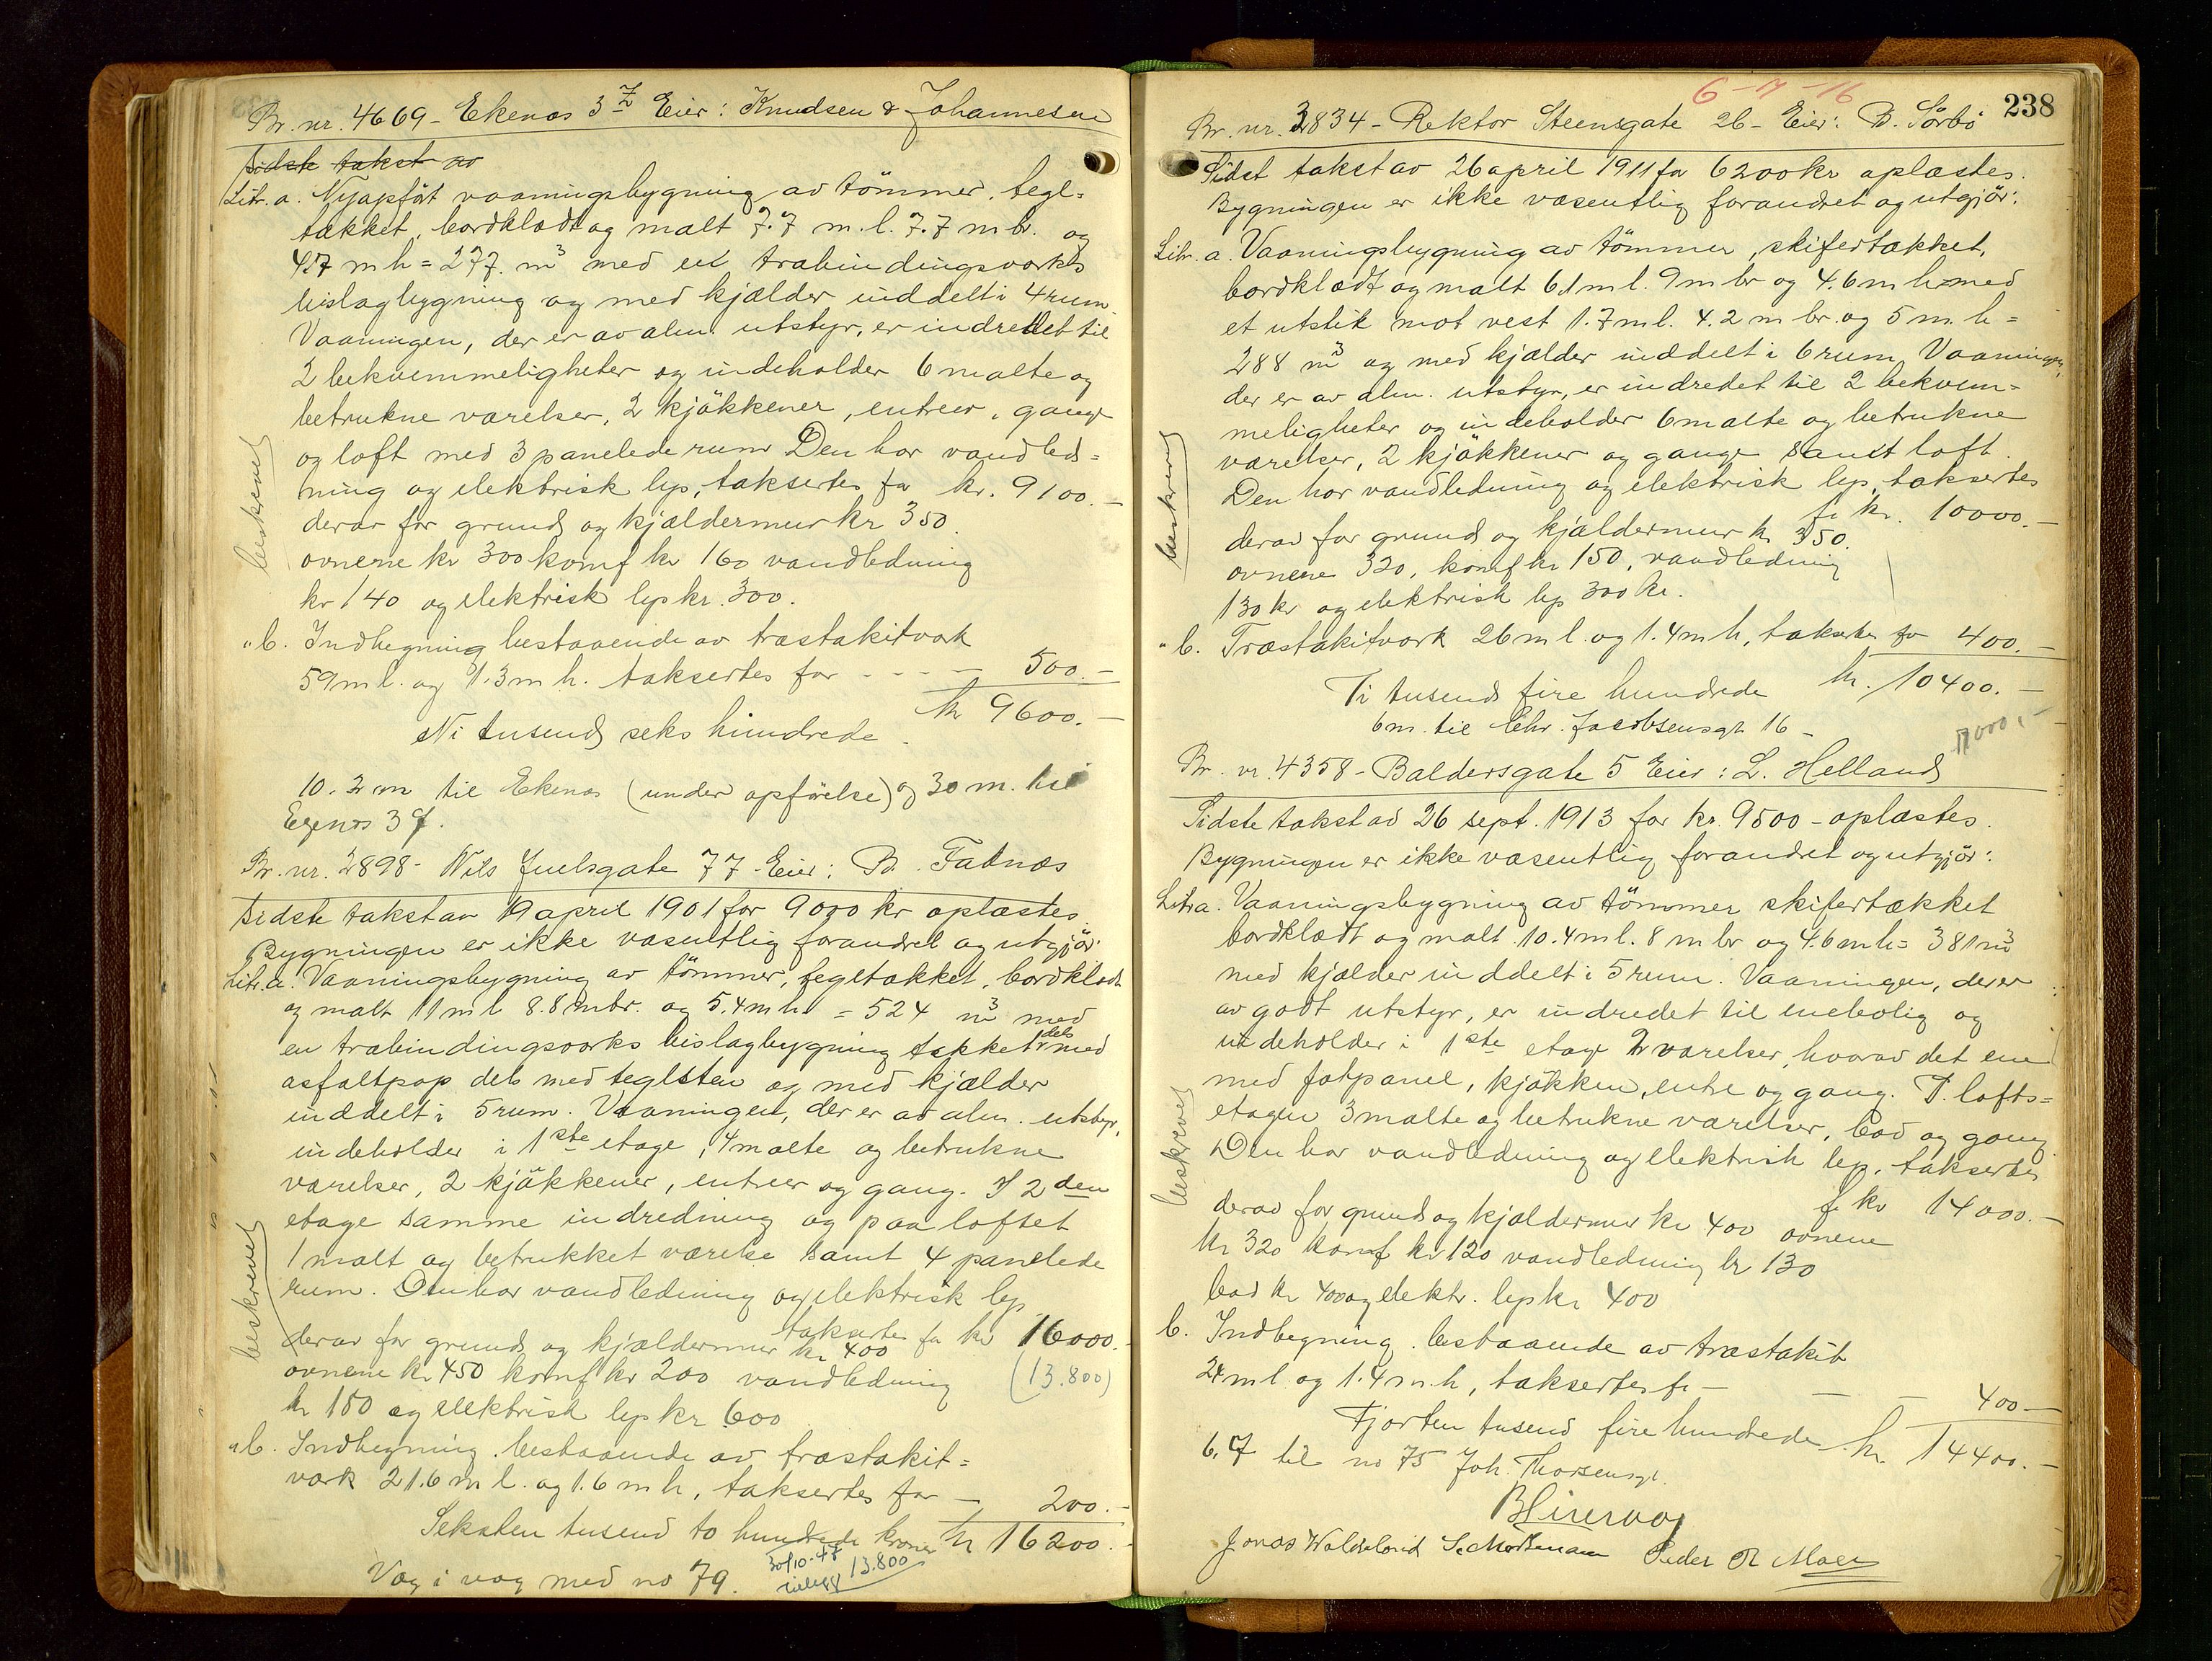 Br. nr. 4669 - Ekenæs 3 Z Eier: Knudsen & Johannesen
Sidste takst av
Litr. a. Nyopført vaaningsbygning av tømmer, tegl=
tækket, bordklædt og malt 7.7 m. l. 7.7 m br. og
4.7 m h = 277. m³ med en træbindingsværks
bislagbygning og med kjælder inddelt i 4 rum.
Vaaningen, der er av alm. utstyr, er indredet til
2 bekvemmeligheter og indeholder 6 malte og
betrukne værelser, 2 kjøkkener, entreer, gange
og loft med 3 panelede rum. Den har vandled=
ning og elektrisk lys, taksertes for kr. 9100.-
derav for grund og kjældermur kr 350.
ovnene kr 300 komf kr 160 vandledning
kr 140 og elektrisk lys kr. 300.
beskrevet
" b. Indhegning bestaaende av træstakitværk
59 m l. og 1.3 m h. taksertes for - - - - 500.-
kr 9600.-
Ni tusend seks hundrede.
10.2 m til Ekenæs (under opførelse) og 30 m. til
Egenæs 3 f.
Br. nr. 2898 - Nils Juelsgate 77 - Eier: B. Fadnæs
Sidste takst av 19 april 1901 for 9000 kr oplæstes.
Bygningen er ikke væsentlig forandret og utgjør:
Litr. a. Vaaningsbygning av tømmer, tegltækket, bordklædt
og malt 11 m l 8.8 m br. og 5.4 m h. = 524 m³ med
en træbindingsværks bislagbygning tækket dels med
asfaltpap dels med teglsten og med kjælder
inddelt i 5 rum. Vaaningen, der er av alm. utstyr,
indeholder i 1ste etage, 4 malte og betrukne
værelser, 2 kjøkkener, entreer og gang. I 2den
etage samme indredning og paa loftet
1 malt og betrukket værelse samt 4 panelede
rum. Den har vandledning og elektrisk lys,
taksertes for kr 16000.-
derav for grund og kjældermur kr 400
ovnene kr 450 komf kr 200 vandledning (13.800)
kr 150 og elektrisk lys kr 600
beskrevet
" b. Indhegning bestaaende av træstakit=
værk 21.6 m l. og 1.6 m h, taksertes for - 200.-
Seksten tusend to hundrede kroner kr 16200.-
Væg i væg med no 79. 30/10-47 13.800
6-4-16
238
Br. nr. 2834 - Rektor Steensgate 26 - Eier: B. Sørbø
Sidst takst av 26 april 1911 for 6200 kr oplæstes.
Bygningen er ikke væsentlig forandret og utgjør:
Litr. a. Vaaningsbygning av tømmer, skifertækket,
bordklædt og malt 6.1 m l. 9 m br og 4.6 m h med
et utstik mot vest 1.7 m l. 4.2 m br. og 5 m. h =
288 m³ og med kjælder inddelt i 6 rum. Vaaningen,
der er av alm. utstyr, er indredet til 2 bekvem=
meligheter og indeholder 6 malte og betrukne
værelser, 2 kjøkkener og gange samt loft.
Den har vandledning og elektrisk lys, taksertes
for kr. 10000.-
derav for grund og kjældermur kr 350.
ovnene 320, komf kr 150, vandledning
130 kr og elektrisk lys 300 kr.
beskrevet
" b. Træstakitværk 26 m l. og 1.4 m h, taksertes for 400.-
Ti tusend fire hundrede kr. 10400.-
6 m. til Chr. Jacobsensgt. 16 -
Br. nr. 4358 - Baldersgate 5 Eier: L. Helland
Sidste takst av 26 sept. 1913 for kr. 9500 - oplæstes.
Bygningen er ikke væsentlig forandret og utgjør:
Litr a. Vaaningsbygning av tømmer skifertækket
bordklædt og malt 10.4 m l. 8 m br og 4.6 m h = 381 m³
med kjælder inddelt i 5 rum. Vaaningen, der er
av godt utstyr, er indredet til enebolig og
indeholder i 1ste etage 2 værelser, hvorav det ene
med fotpanel, kjøkken, entre og gang. I lofts=
etagen 3 malte og betrukne værelser, bad og gang.
Den har vandledning og elektrisk lys, taksertes
for kr 14000.-
derav for grund og kjældermur kr 400 ovnene
kr 320 komf kr 120 vandledning kr 130
bad kr 400 og elektr. lys kr 400
beskrevet
b. Indhegning bestaaende av træstakit
24 m l og 1.4 m. h, taksertes for - - - 400 -
Fjorten tusend fire hundrede kr. 14400.-
6.7 til no 75 Joh. Thorsensgt.
Peder R Moen